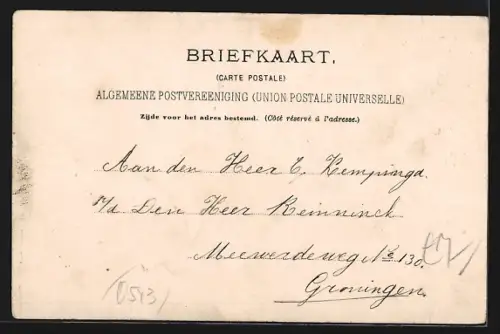 BRIEFKAART.
(CARTE POSTALE)
ALGEMEENE POSTVEREENIGING (UNION POSTALE UNIVERSELLE)
Zijde voor het adres bestemd. (Côté réservé à l'adresse.)
Aan den Heer E. Kempinga.
p/a Den Heer Reinninck
No 130.
Groningen.
0543